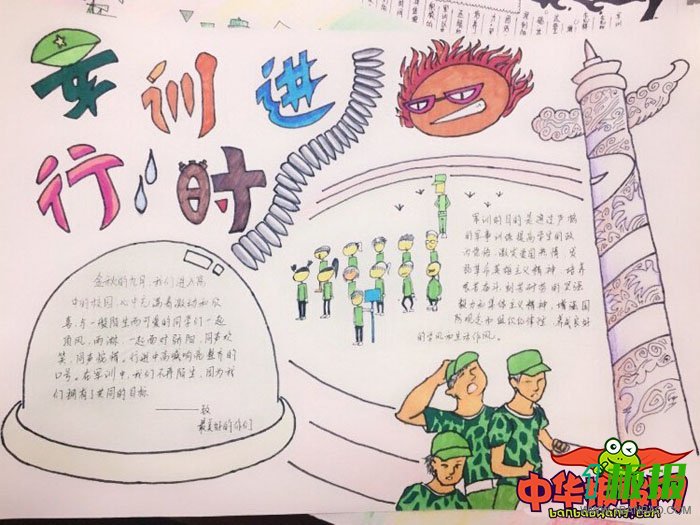 军训进
行时
金秋的九月,我们进入高
中的校园,心中充满着激动和欣
喜,与一般陌生而可爱的同学们一起
顶风,雨淋,一起面对骄阳,同声欢
笑,同声
行进中高喊响亮整齐的
口号。在军训中,我们不再陌生,因为我
们拥有了共同的目标
——致
最美好的你们
军训的目的是通过严格
的军事训练提高学生的政
治觉悟,激发爱国热情,发
扬革命英雄主义精神,培养
艰苦奋斗,刻苦耐劳的坚强
毅力和集体主义精神,增强国
防观念和组织纪律性,养成良好
的学风和生活作风。
中华
报网
banbaowang.com